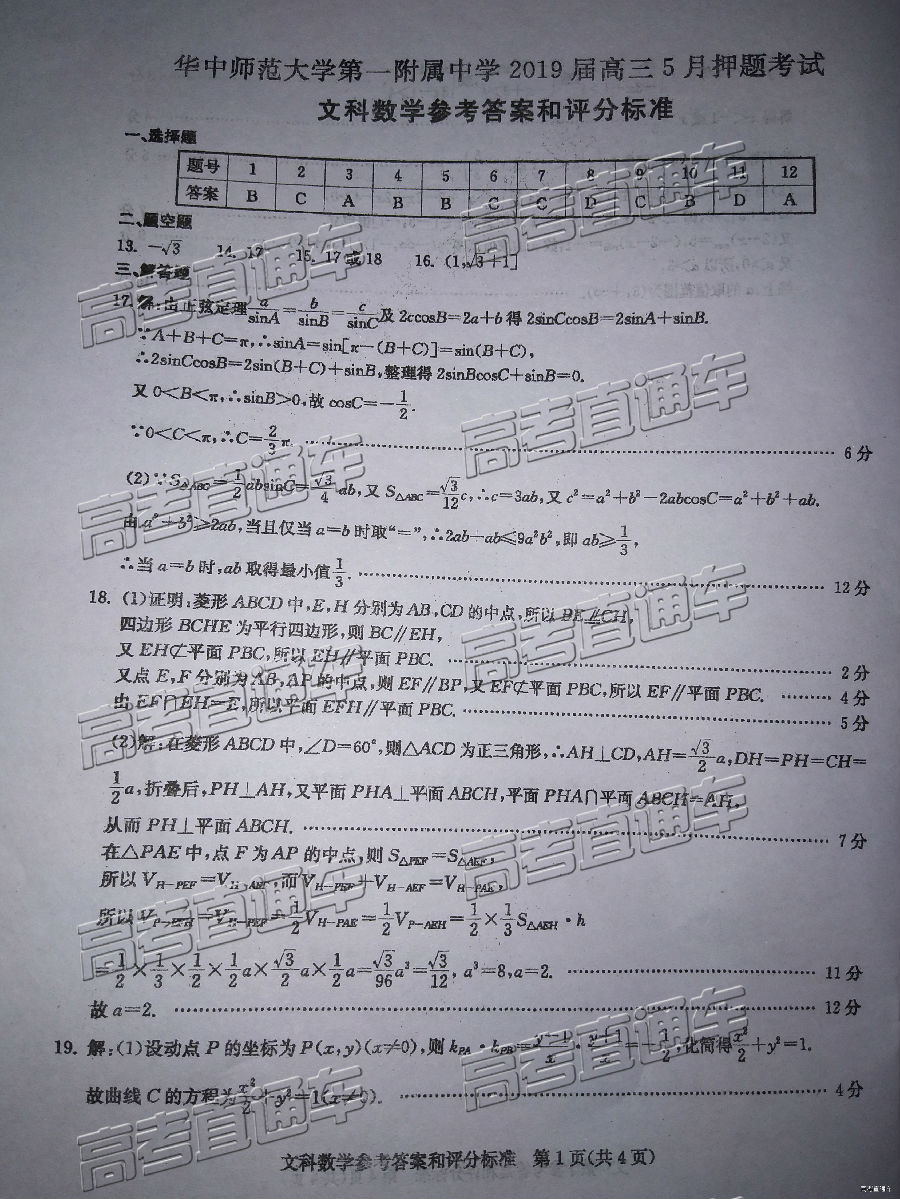 华中师范大学第一附属中学 2019 届高三 5 月押题考试
文科数学参考答案和评分标准
一、选择题
题号 1 2 3 4 5 6 7 8 9 10 11 12
答案 B C A B B C C D C B D A
二、填空题
13. -√3 14. 17 15. 17或18 16. (1,√3+1]
三、解答题
17. 解:由正弦定理 a/sinA = b/sinB = c/sinC 及 2ccosB=2a+b 得 2sinCcosB=2sinA+sinB.
∵A+B+C=π,∴sinA=sin[π-(B+C)]=sin(B+C),
∴2sinCcosB=2sin(B+C)+sinB,整理得 2sinBcosC+sinB=0.
又 0<B<π,∴sinB>0,故 cosC=-1/2.
∵0<C<π,∴C=2/3π. 6 分
(2)∵S△ABC=1/2absinC=√3/4ab,又 S△ABC=√3/12c,∴c=3ab,又 c²=a²+b²-2abcosC=a²+b²+ab.
由 a²+b²≥2ab,当且仅当 a=b 时取“=”,∴2ab+ab≤9a²b²,即 ab≥1/3,
∴当 a=b 时,ab 取得最小值 1/3. 12 分
18. (1)证明:菱形 ABCD 中,E,H 分别为 AB,CD 的中点,所以 BE CH,
四边形 BCHE 为平行四边形,则 BC∥EH,
又 EH⊄平面 PBC,所以 EH∥平面 PBC. 2 分
又点 E,F 分别为 AB,AP 的中点,则 EF∥BP,又 EF⊄平面 PBC,所以 EF∥平面 PBC. 4 分
由 EF∩EH=E,所以平面 EFH∥平面 PBC. 5 分
(2)解:在菱形 ABCD 中,∠D=60°,则△ACD 为正三角形,∴AH⊥CD,AH=√3/2a,DH=PH=CH=
1/2a,折叠后,PH⊥AH,又平面 PHA⊥平面 ABCH,平面 PHA∩平面 ABCH=AH,
从而 PH⊥平面 ABCH. 7 分
在△PAE 中,点 F 为 AP 的中点,则 S△PEF=S△AEF,
所以 V_H-PEF=V_H-AEF,而 V_H-PEF+V_H-AEF=V_H-PAE,
所以 V_P-EFH=V_H-PEF=1/2V_H-PAE=1/2V_P-AEH=1/2×1/3S△AEH·h
=1/2×1/3×1/2×1/2a×√3/2a×1/2a=√3/96a³=√3/12, a³=8,a=2. 11 分
故 a=2. 12 分
19. 解:(1)设动点 P 的坐标为 P(x,y)(x≠0),则 k_PA·k_PB=(y-1)/x·(y+1)/x=-1/2,化简得 x²/2+y²=1.
故曲线 C 的方程为 x²/2+y²=1(x≠0). 4 分
文科数学参考答案和评分标准 第 1 页(共 4 页)
高考直通车